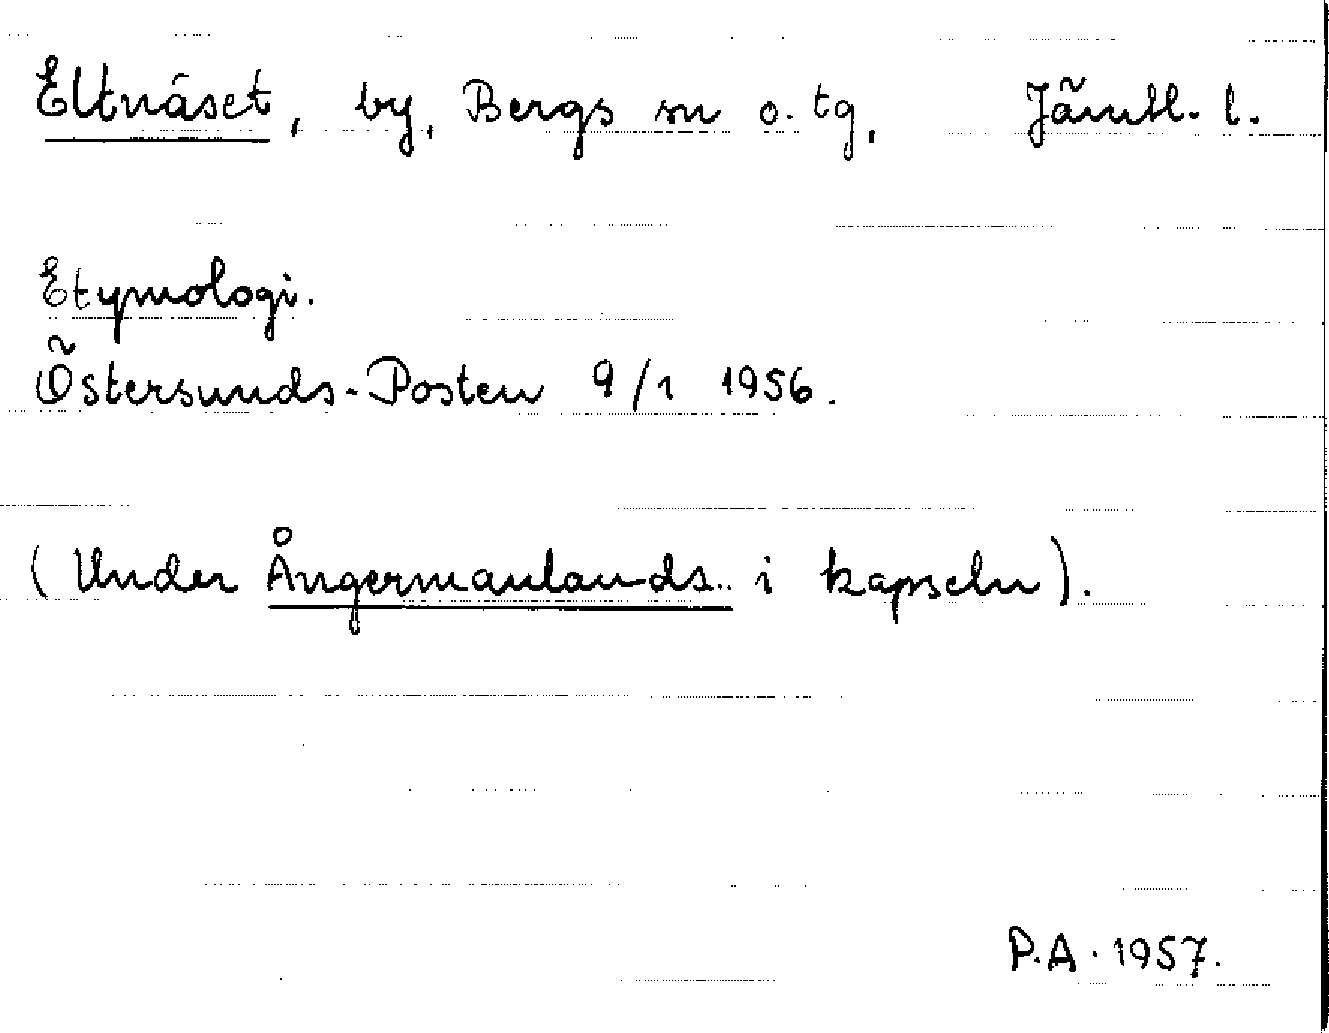 Eltnäset, by, Bergs sn o. tg, Jämtl. l.
Etymologi.
Östersunds-Posten 9/1 1956.
(Under Ångermanlands.. i kapseln).
P.A. 1957.